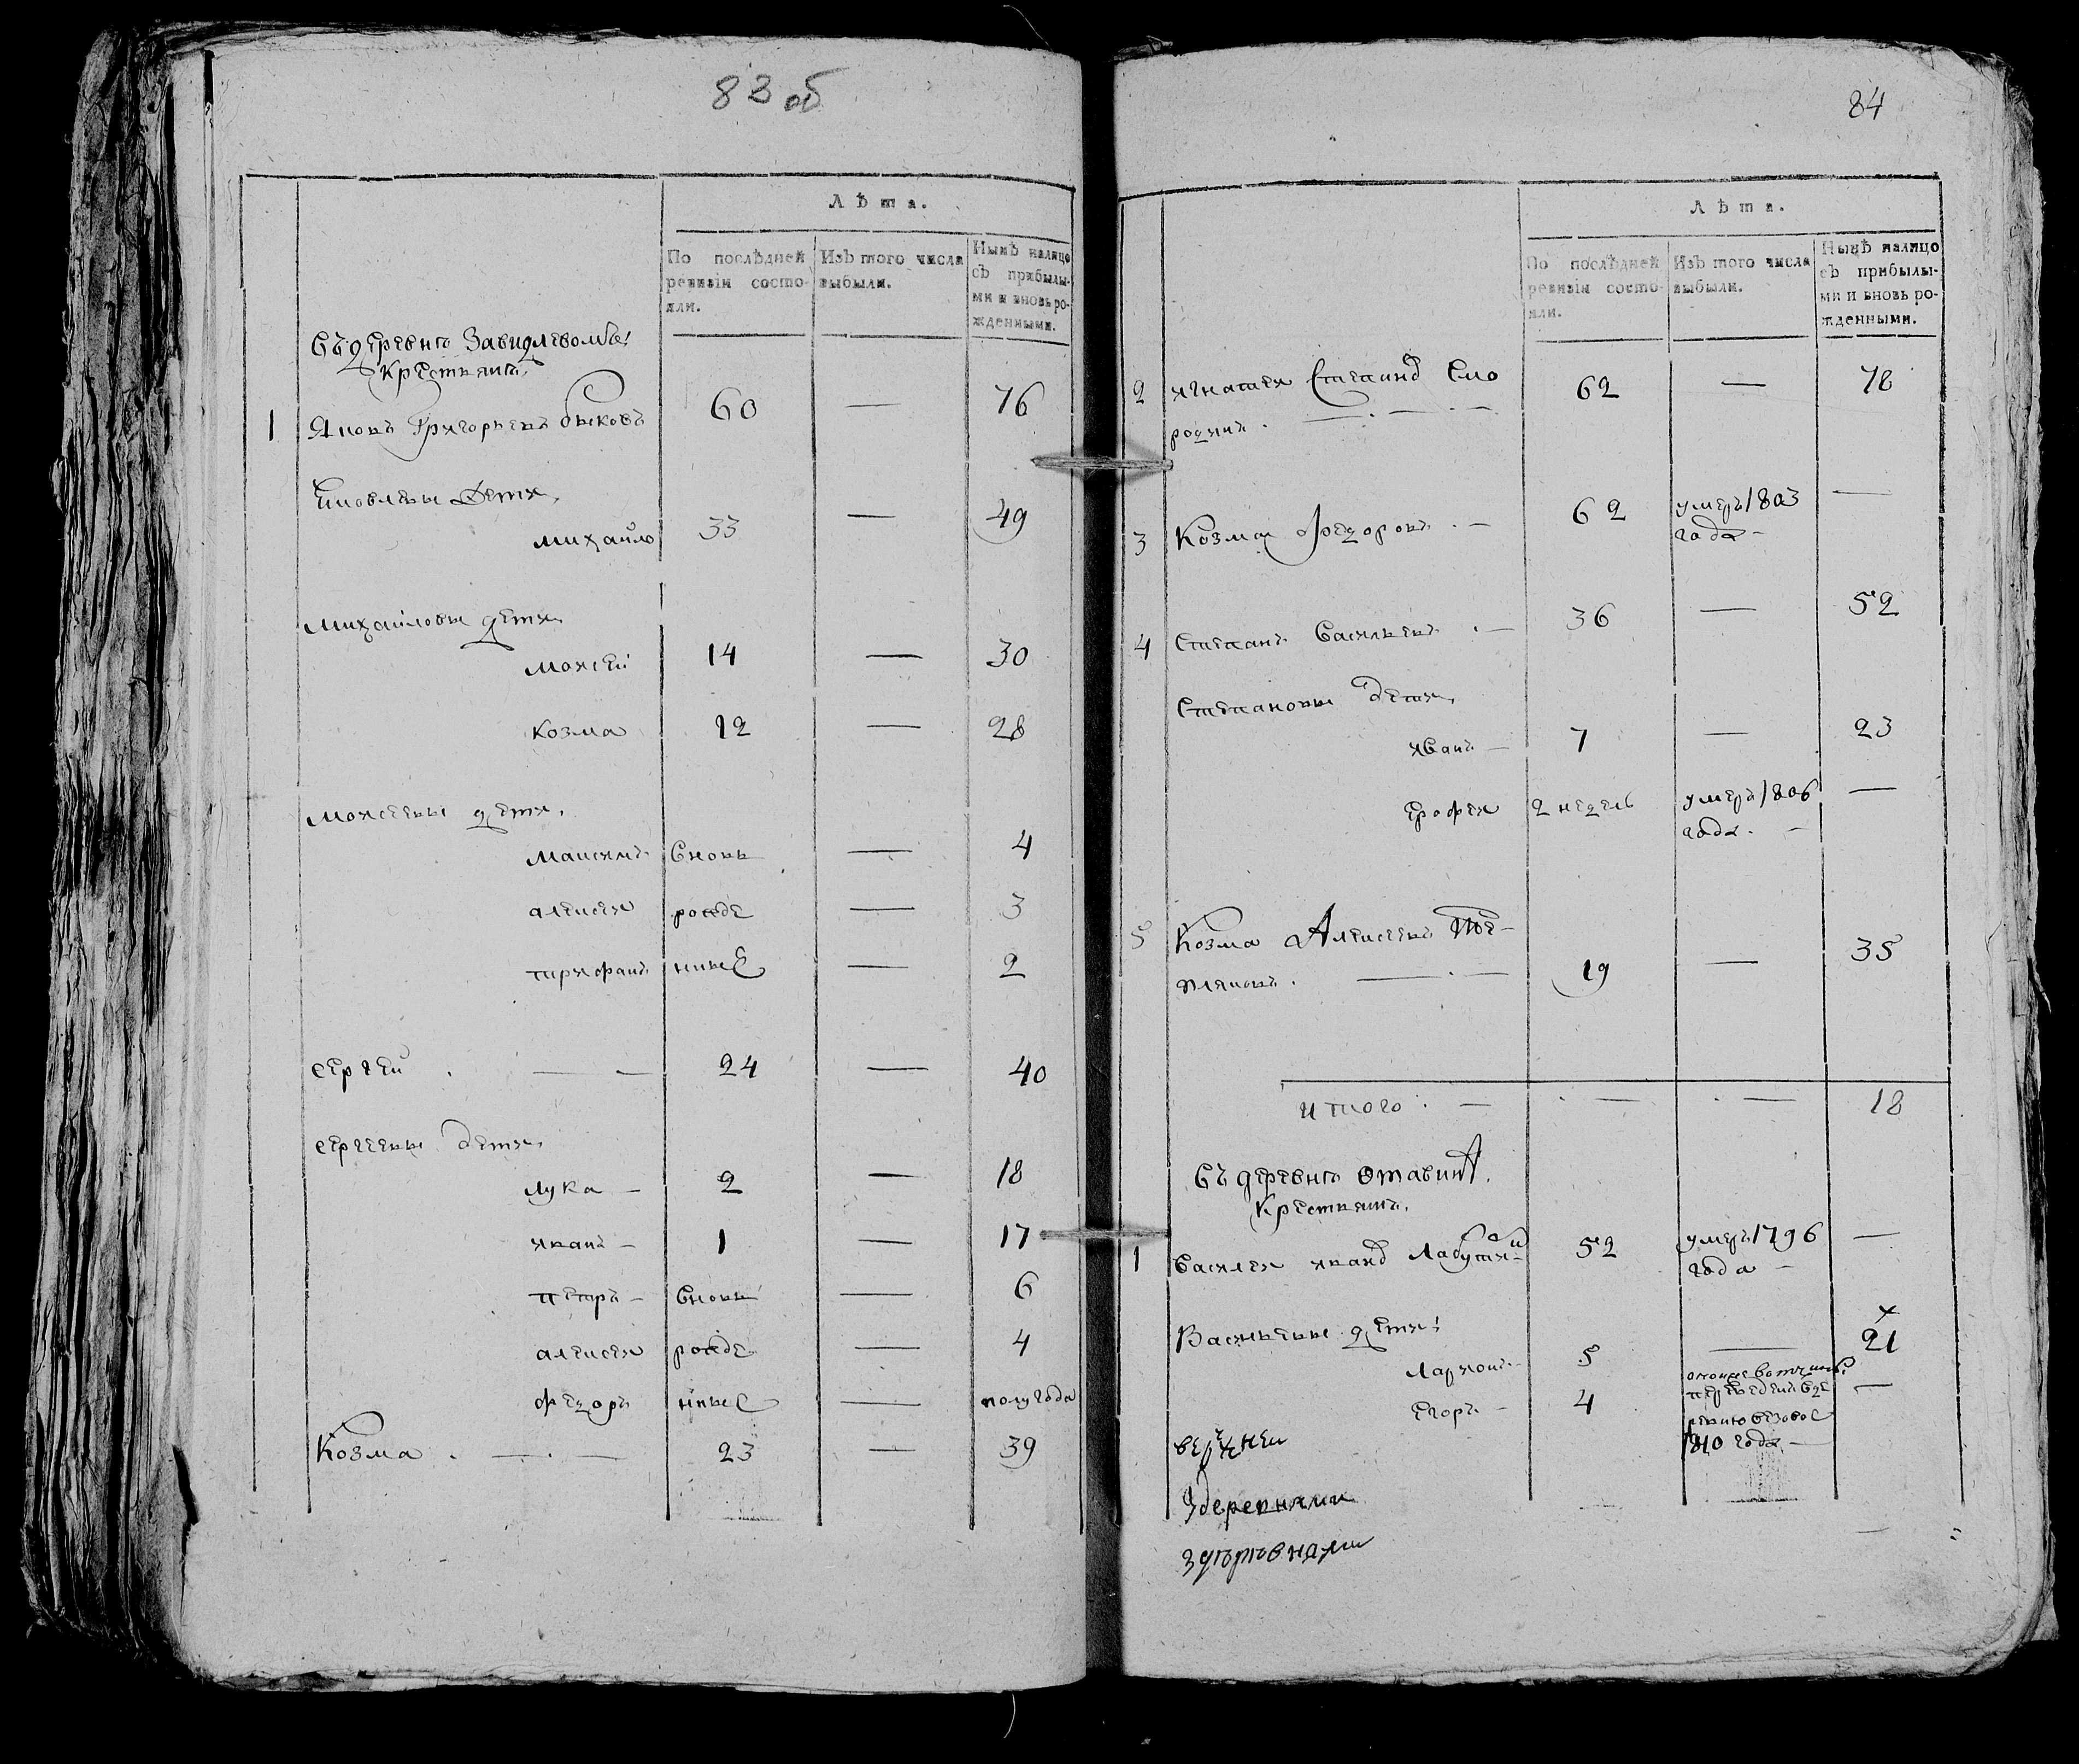 83 об
Лѣта.
По послѣдней ревизіи состояли.
Изъ того числа выбыли.
Нынѣ налицо съ прибылыми и вновь рожденными.
Въ деревнѣ Завидлевомъ:
Крестьянъ.
1 Яковъ Григорьевъ Быковъ 60 — 76
Яковлевы дети,
михайло 33 — 49
михайловы дети
моисей 14 — 30
козма 12 — 28
моисеевы дети,
максимъ вновь — 4
алексеи рожде — 3
трифанъ нные — 2
сергей . — — 24 — 40
сергеевы дети,
лука — 2 — 18
иванъ — 1 — 17
петръ — вновь — 6
алексеи рожде — 4
федоръ нные — полугода
Козма . — . — 23 — 39
84
Лѣта.
По послѣдней ревизіи состояли.
Изъ того числа выбыли.
Нынѣ налицо съ прибылыми и вновь рожденными.
2 игнатеи Степанд Смо 62 — 78
родинъ .
3 Козма Федоровъ . — 62 умеръ 1803 —
года —
4 Степанъ Васильевъ . — 36 — 52
Степановы дети,
иванъ — 7 — 23
ерофеи 2 недель умеръ 1806 —
года . —
5 Козма Алексеевъ Те-
пляковъ . — . — 19 — 35
итого . — . — . — 18
Въ деревнѣ Отавинѣ.
Крестьянъ.
1 Василеи иванд Лабути- 52 умеръ 1796 —
года —
Васильевы дети:
Ларионъ — 5 — 21
Егоръ — 4
1810 года —
здеревнями
здѣрѣвнями